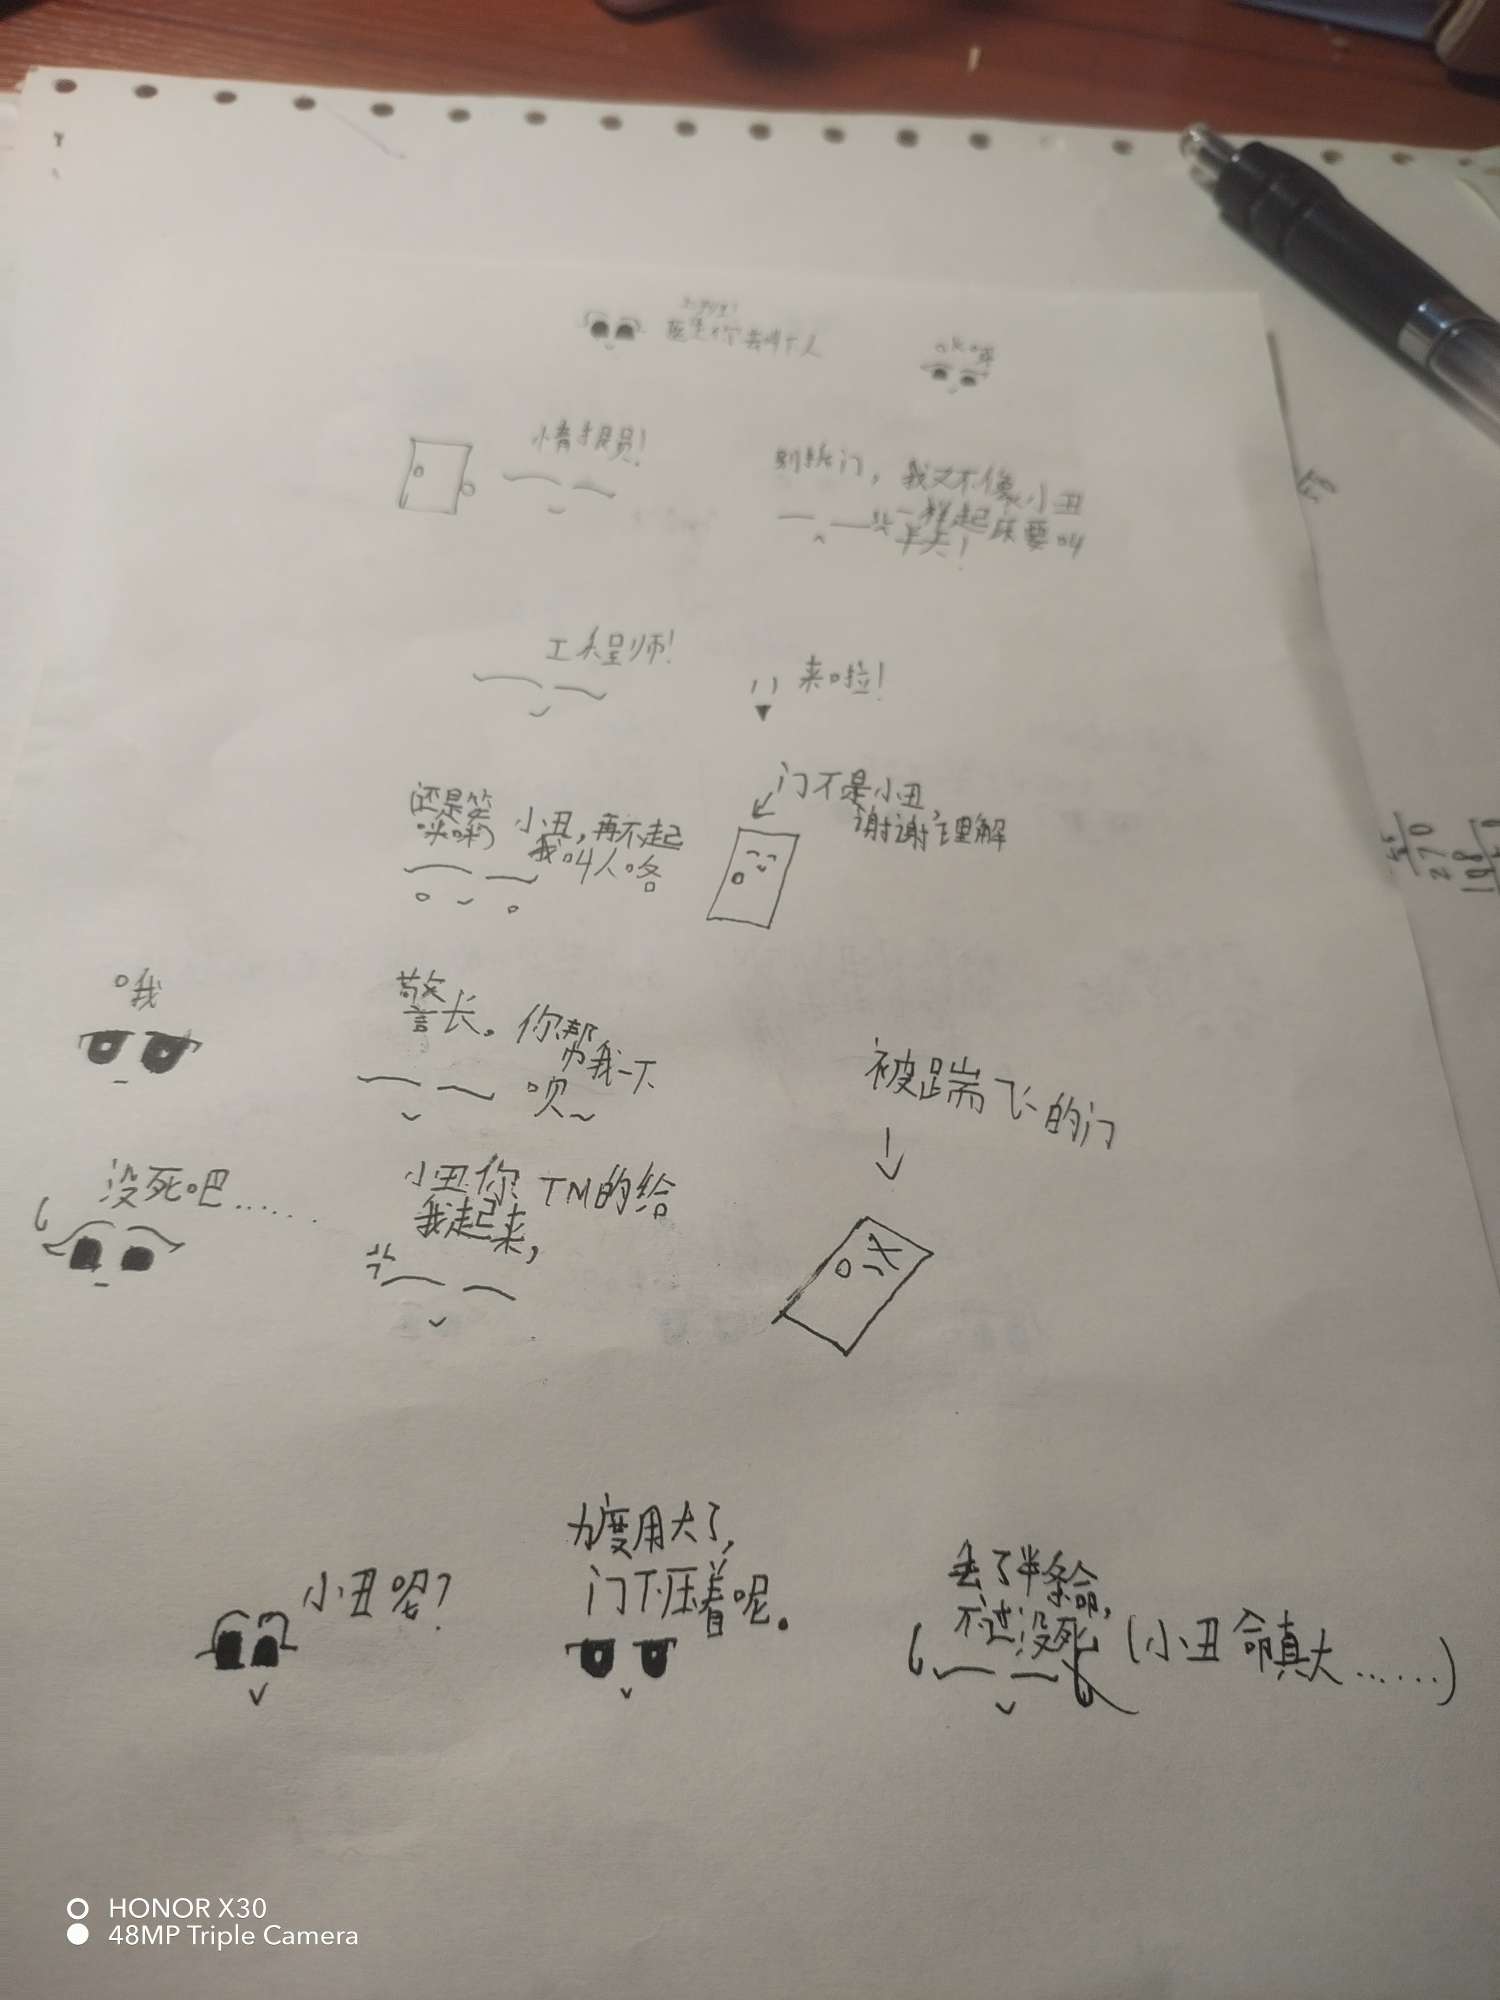 医生你去叫个人
ok啊
情报员!
别锤门，我又不像小丑
一样起床要叫
半天!
工程师!
来啦!
(还是笑
咪咪)
小丑,再不起
我叫人咯
门不是小丑,
谢谢理解
哦
警长。你帮
我一下
呗~
被踹飞的门
没死吧……
小丑你TM的给
我起来,
小丑呢?
力度用大了,
门下压着呢。
丢了半条命,
不过没死
(小丑命真大……)
270
HONOR X30
48MP Triple Camera